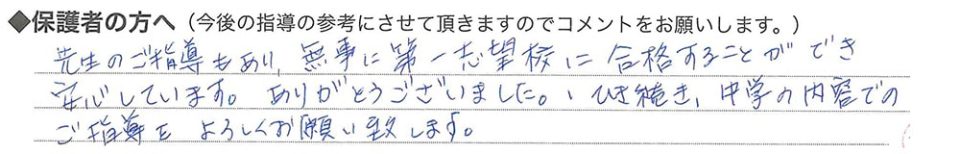 ◆保護者の方へ（今後の指導の参考にさせて頂きますのでコメントをお願いします。）
先生のご指導もあり、無事に第一志望校に合格することができ
安心しています。ありがとうございました。、ひき続き、中学の内容での
ご指導を よろしくお願い致します。